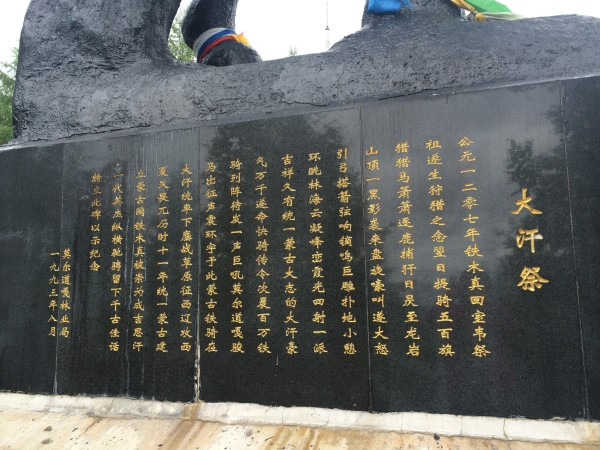 大汗祭
公元一二零七年铁木真回室韦祭
祖遂生狩猎之念翌日提骑五百旗
猎猎马萧萧逐鹿捕犴日昃至龙岩
山顶一黑影袭来盘旋嚎叫遂大怒
引弓搭箭弦响镝鸣巨雕扑地小憩
环眺林海云凝峰峦霞光四射一派
吉祥久有统一蒙古大志的大汗豪
气万千遂命快骑传令次晨百万铁
骑列阵待发一声巨吼莫尔道嘎骏
马出征声震环宇于此蒙古铁骑在
大汗统率下鏖战草原征西辽攻西
夏灭畏兀历时十一年统一蒙古建
立蒙古国铁木真被崇为成吉思汗
一代英杰纵横驰骋留下千古佳话
特立此碑以示纪念
莫尔道嘎林业局
一九九三年八月